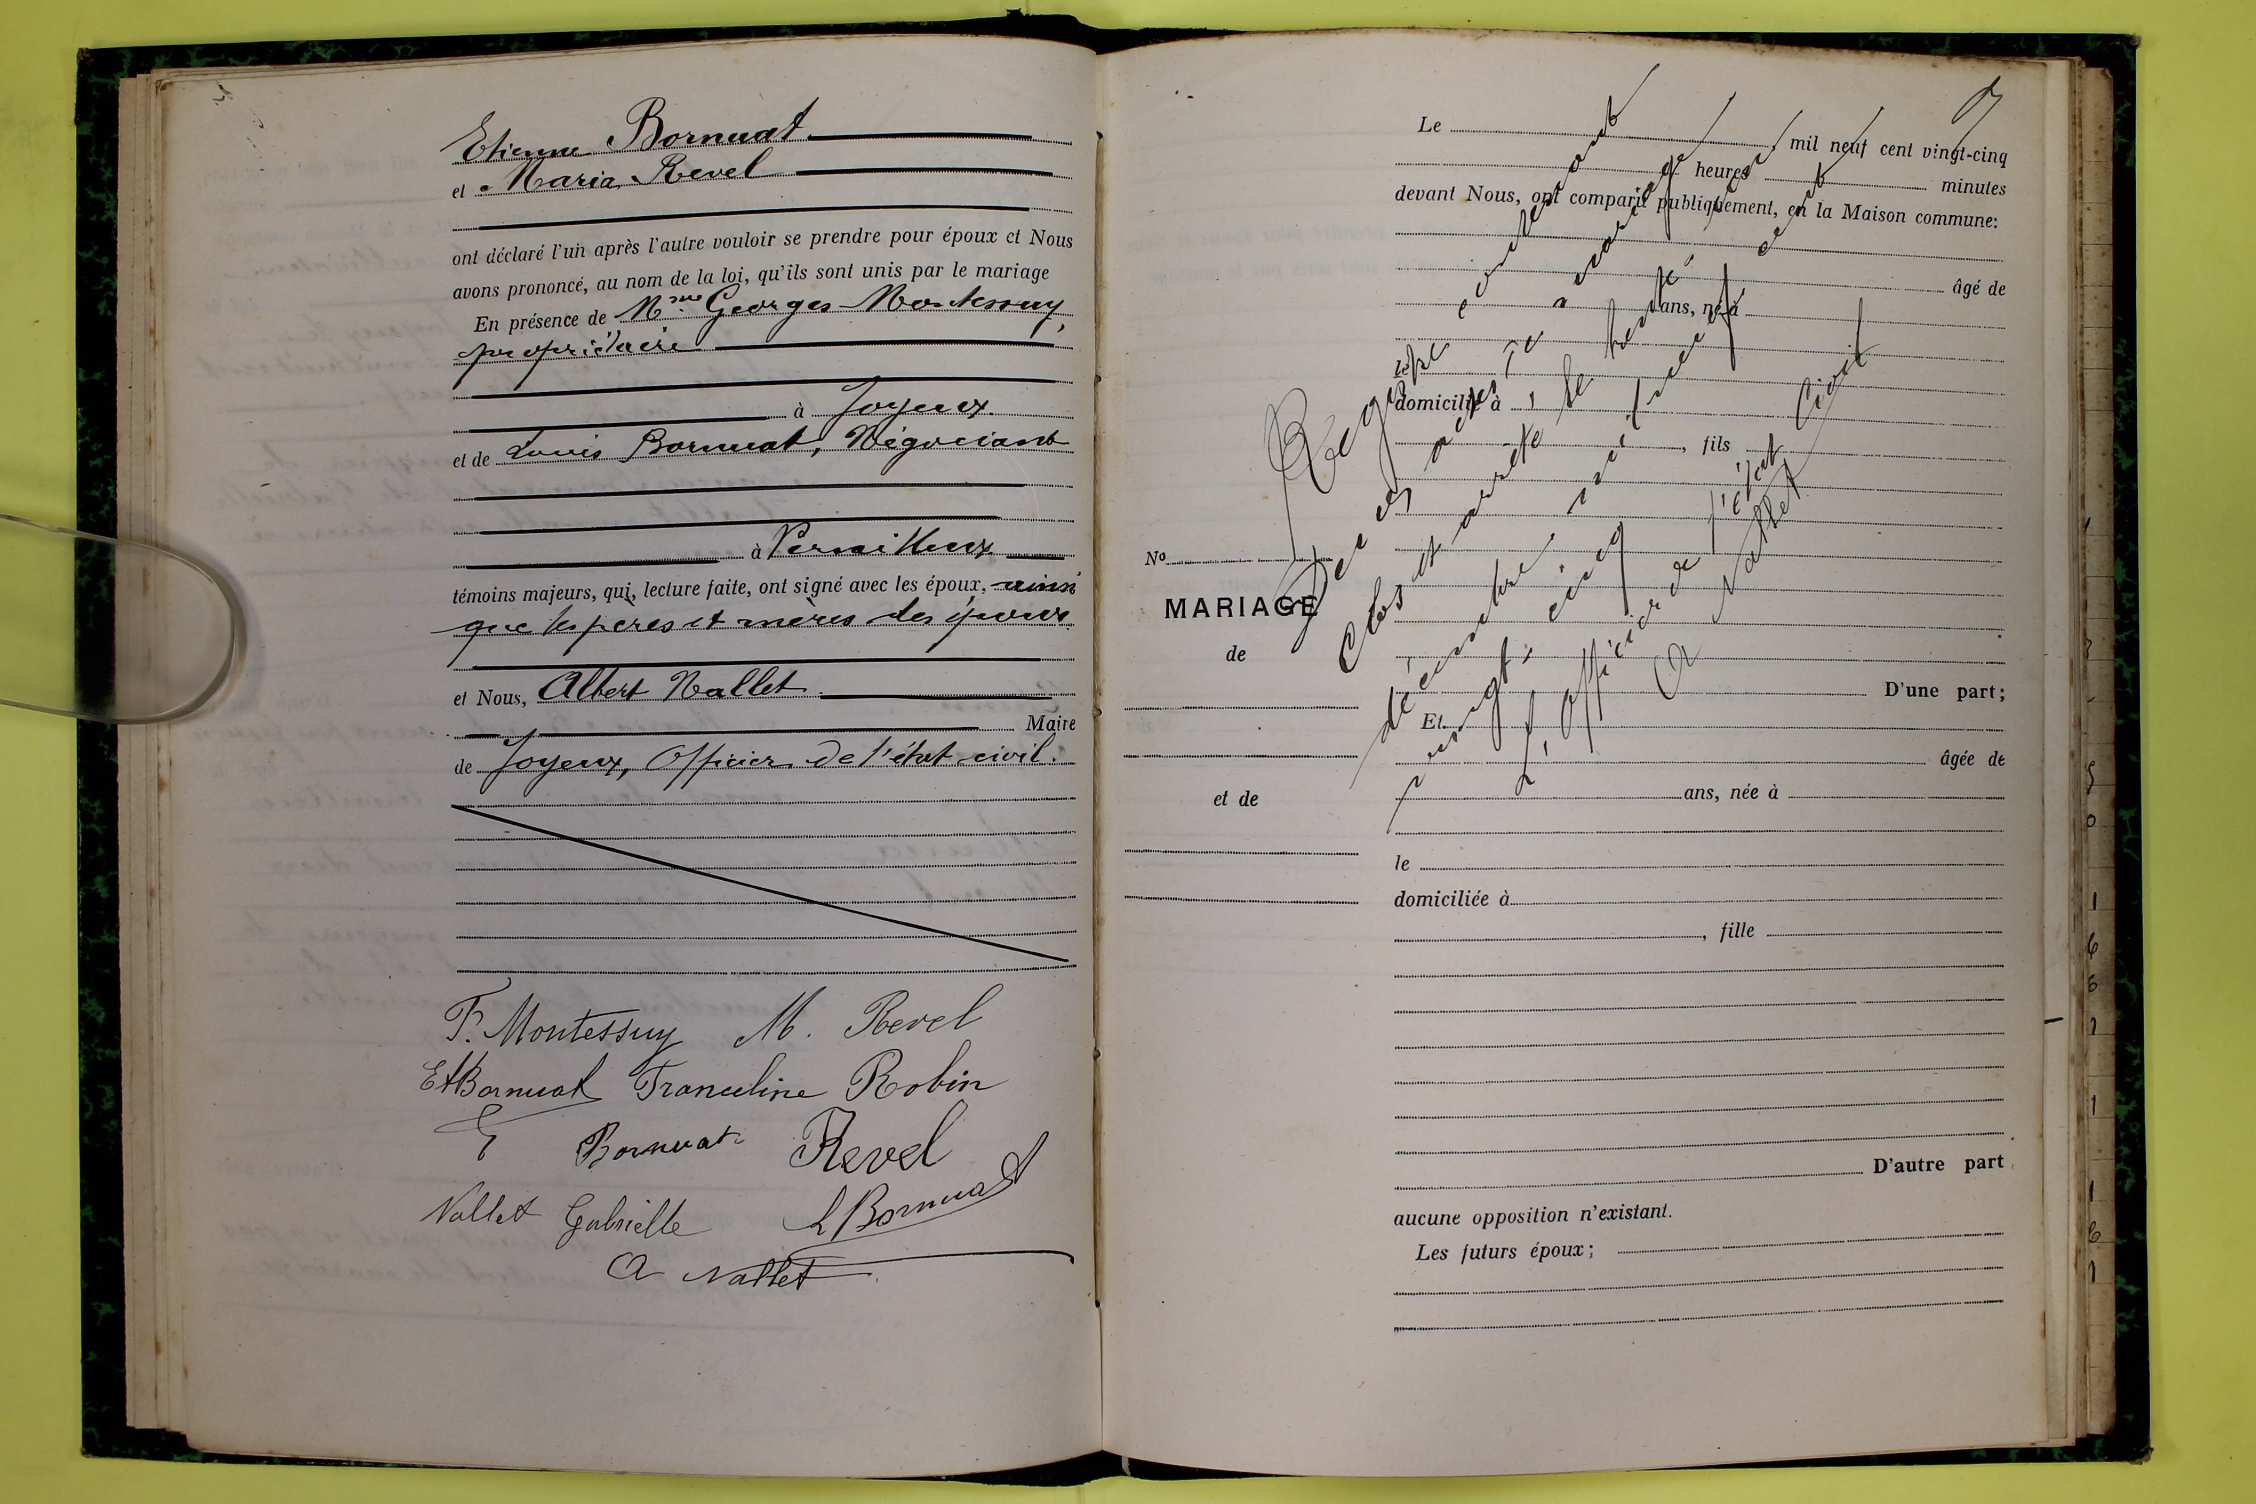 Etienne Bornuat
et Maria Revel
ont déclaré l'un après l'autre vouloir se prendre pour époux et Nous
avons prononcé, au nom de la loi, qu'ils sont unis par le mariage
En présence de Mme Georges Montessuy,
propriétaire
à Joyeux
et de Louis Bornuat, Négociant
à Versailleux
témoins majeurs, qui, lecture faite, ont signé avec les époux, ainsi
que les pères et mères des époux
et Nous, Albert Nallet
Maire
de Joyeux, Officier de l'état civil.
F. Montessuy M. Revel
Et Bornuat Franceline Robin
Bornuat Revel
Nallet Gabrielle L Bornuat
A Nallet
Le mil neuf cent vingt-cinq
heures minutes
devant Nous, ont comparu publiquement, en la Maison commune:
âgé de
ans, né à
le
domicilié à
, fils
No
MARIAGE
de
D'une part;
Et
âgée de
et de
ans, née à
le
domiciliée à
, fille
D'autre part
aucune opposition n'existant.
Les futurs époux;
Registre contenant
deux actes de mariage,
clos et arrêté le trente et un
décembre mil neuf cent
vingt-cinq
L'Officier de l'état Civil
A Nallet